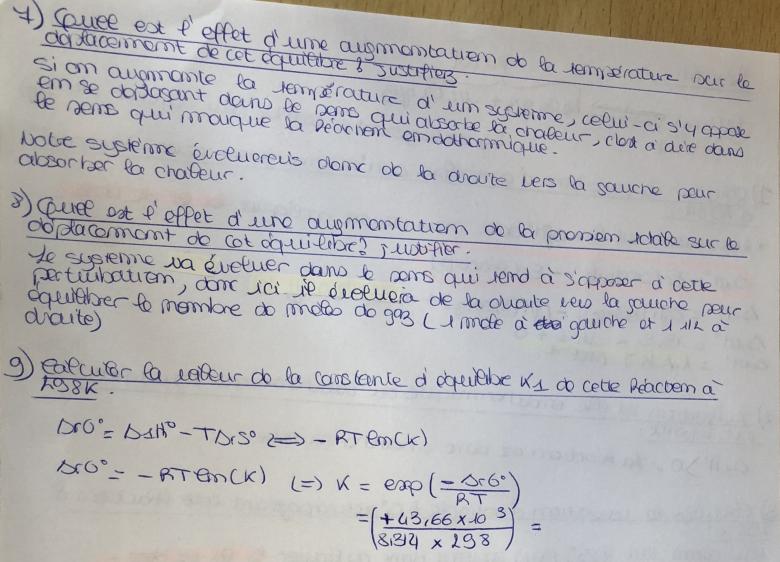 7) Quel est l'effet d'une augmentation de la température sur le
déplacement de cet équilibre ? Justifiez.
Si on augmente la température d'un système, celui-ci s'y oppose
en se déplaçant dans le sens qui absorbe la chaleur, c'est à dire dans
le sens qui la Réaction endothermique.
Notre système évoluerais donc de la droite vers la gauche pour
absorber la chaleur.
8) Quel est l'effet d'une augmentation de la pression totale sur le
déplacement de cet équilibre? justifier.
Le système va évoluer dans le sens qui tend à s'opposer à cette
perturbation, donc ici il évoluera de la droite vers la gauche pour
équilibrer le nombre de moles de gaz ( 1 mole à gauche et 1 1/2 à
droite)
9) Calculer la valeur de la constante d'équilibre K1 de cette Réaction à
298K.
ΔrG° = ΔrH° - TΔrS° <=> - RT ln(K)
ΔrG° = - RT ln(K) (=) K = exp(-ΔrG°/RT)
= (+43,66 x 10^3 / 8,314 x 298) =